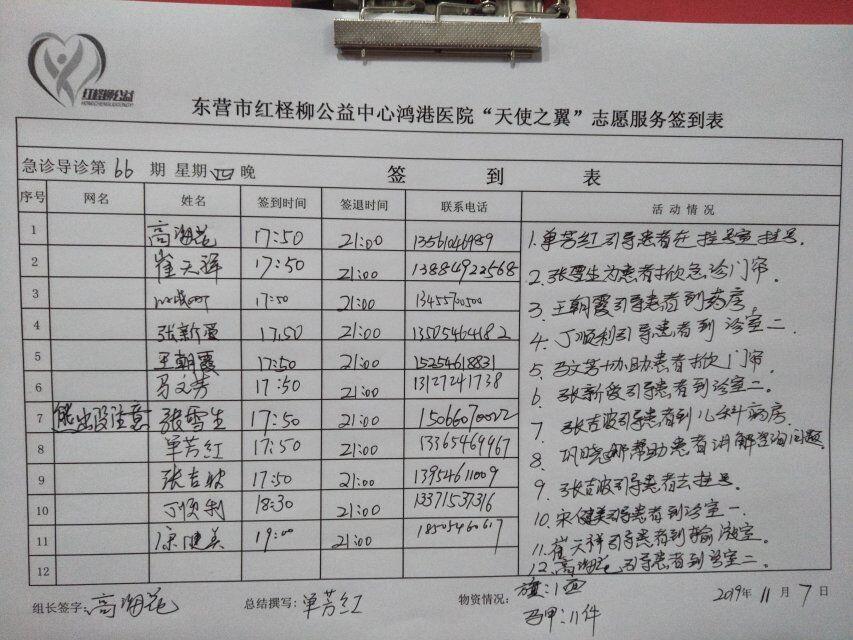 红柽柳公益
HONGCHENGLIUGONGYI
东营市红柽柳公益中心鸿港医院“天使之翼”志愿服务签到表
急诊导诊第66期 星期四晚 签到表
序号 网名 姓名 签到时间 签退时间 联系电话 活动情况
1 高海花 17:50 21:00 13561046989
2 崔天祥 17:50 21:00 13884922568
3 17:50 21:00 13455700500
4 张新爱 17:50 21:00 13505464182
5 王朝霞 17:50 21:00 15254618831
6 马文芳 17:50 21:00 13127241738
7 熊出没注意 张雪生 17:50 21:00 15066070022
8 单芳红 17:50 21:00 13365469967
9 张吉波 17:50 21:00 13954611009
10 丁顺利 18:30 21:00 13371537316
11 宋健美 19:00 21:00 18505460617
12
1.单芳红引导患者在挂号室挂号.
2.张雪生为患者掀急诊门帘.
3.王朝霞引导患者到药房.
4.丁顺利引导患者到诊室二.
5.马文芳协助患者掀门帘.
6.张新爱引导患者到诊室二.
7.张吉波引导患者到儿科病房.
8.巩晓娜帮助患者讲解咨询问题
9.张吉波引导患者去挂号.
10.宋健美引导患者到诊室一.
11.崔天祥引导患者到输液室.
12.高海花引导患者到诊室二.
组长签字:高海花 总结撰写:单芳红 物资情况:旗:1面
马甲:11件
2019年11月7日